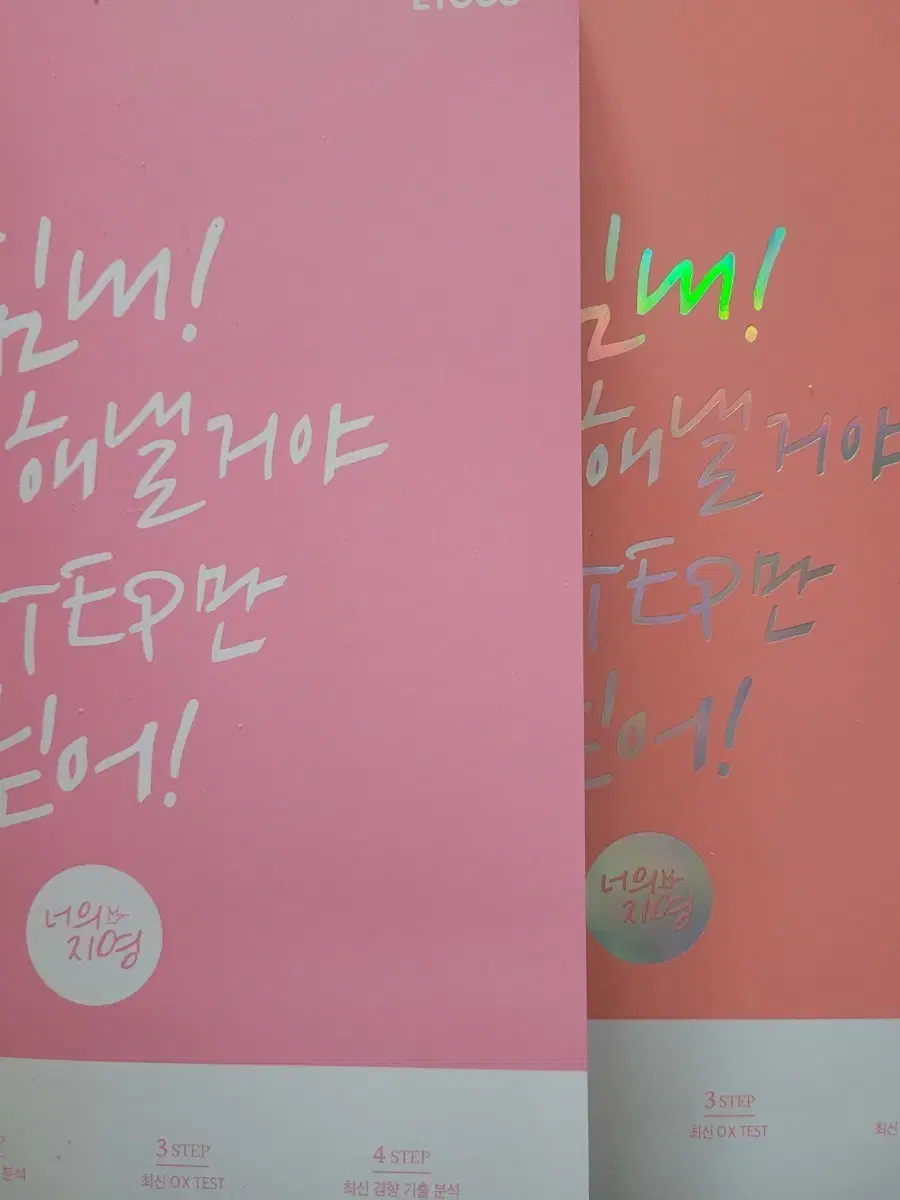 힘내!
해낼거야
STEP만
믿어!
너의
지영
3 STEP
최신 OX TEST
4 STEP
최신 경향 기출 분석
분석
내!
해낼거야
TEP만
어!
너의
지영
3 STEP
최신 OX TEST
최신